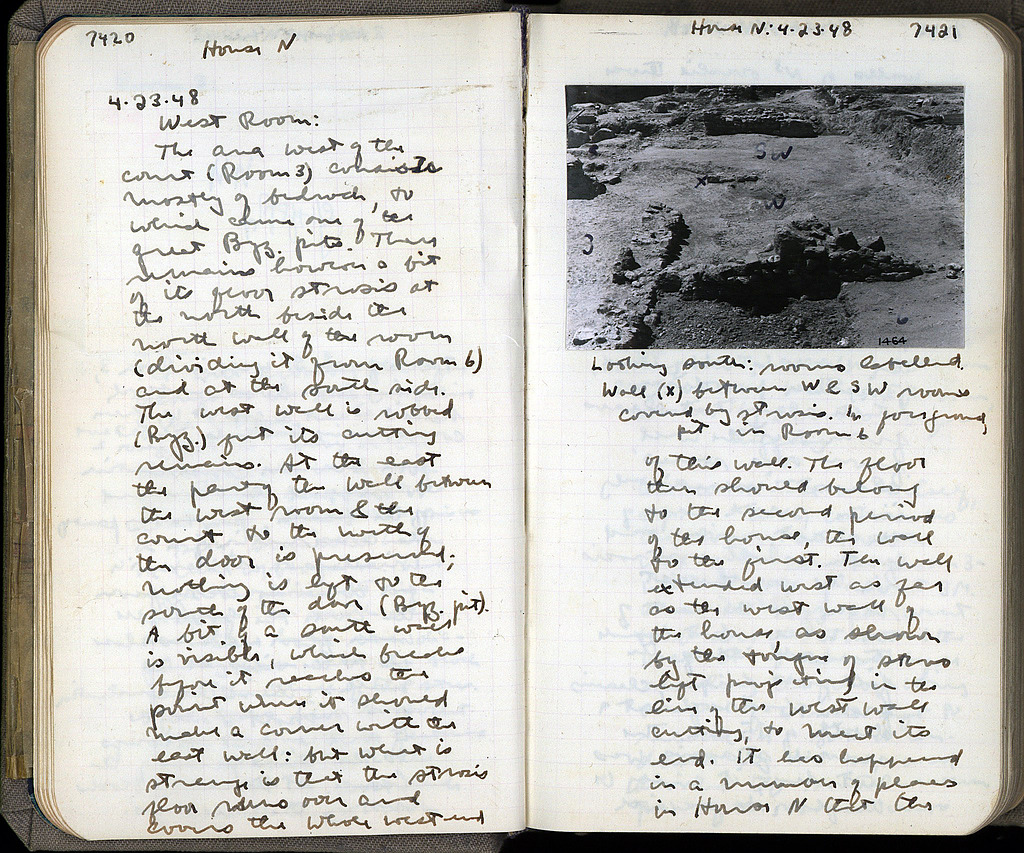 7420
House N
4.23.48
West Room:
The area west of the
court (Room 3) consists
mostly of bedrock, to
which came one of the
great Byz. pits. There
remains however a bit
of its floor strosis at
the north beside the
north wall of the room
(dividing it from Room 6)
and at the south side.
The west wall is robbed
(Byz.) but its cutting
remains. At the east
the party wall between
the west room & the
court to the north of
the door is preserved;
nothing is left to the
south of the door (Byz. pit).
A bit of a south wall
is visible, which breaks
before it reaches the
point where it should
make a corner with the
east wall: but what is
strange is that the strosis
floor runs over and
covers the whole west end
House N: 4.23.48
7421
SW
x
W
3
6
1464
Looking south: rooms labelled.
Wall (x) between W & SW rooms
covered by strosis. In foreground,
pit in Room 6
of this wall. The floor
then should belong
to the second period
of the house, the wall
to the first. The wall
extended west as far
as the west wall of
the house, as shown
by the tongue of stereo
left projecting in the
line of the west wall
cutting, to meet its
end. It has happened
in a number of places
in House N that the